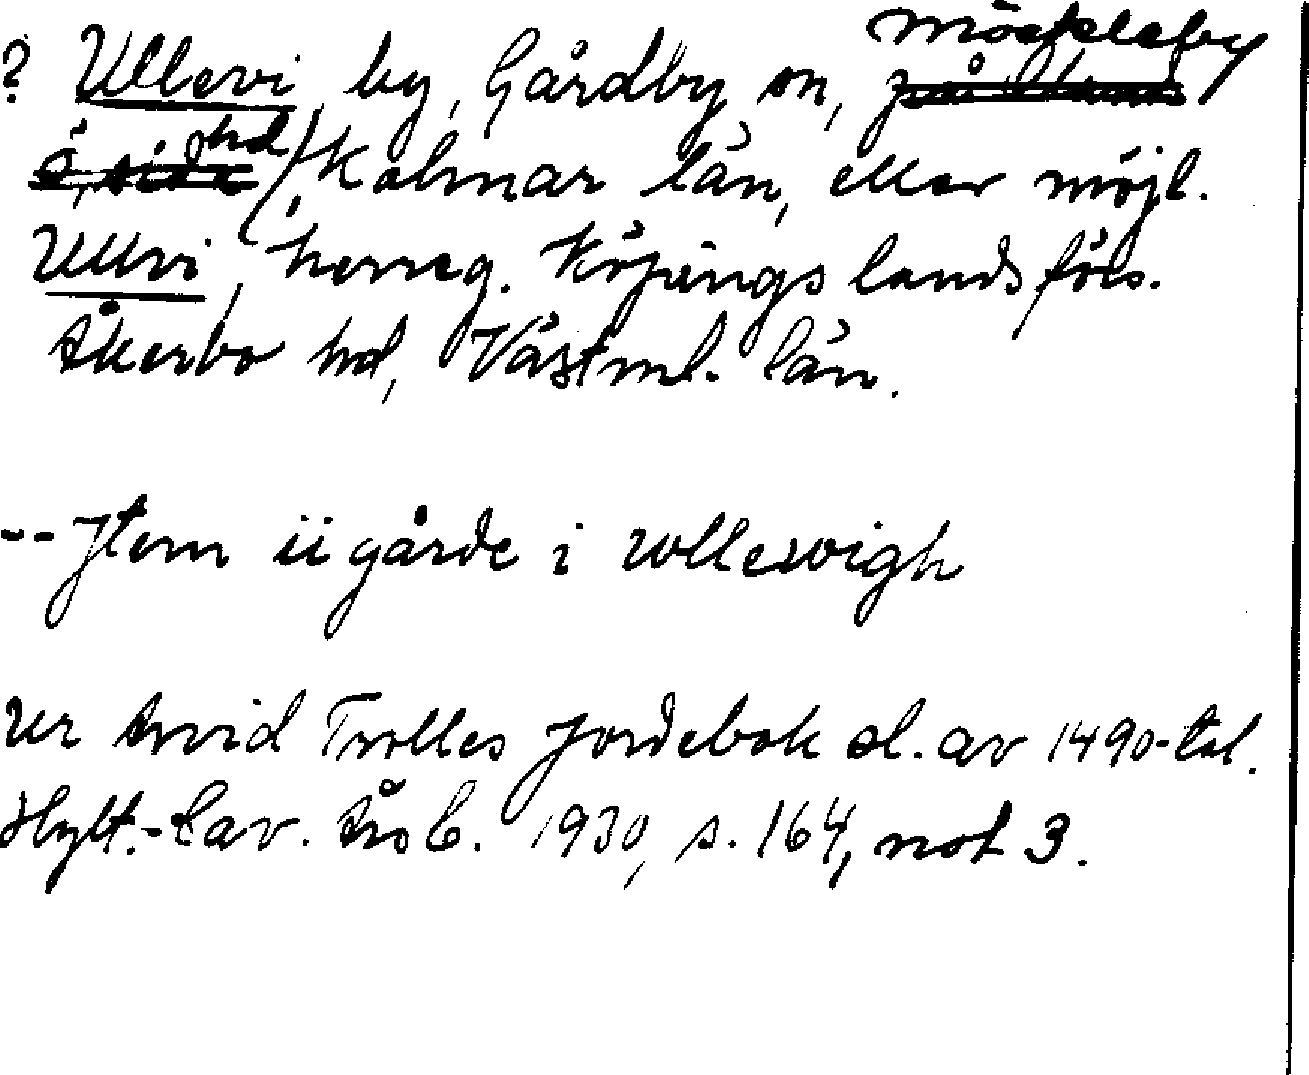 ? Ullevi, by, Gårdby sn, Möckleby
hd, Kalmar län, eller möjl.
Ullvi, herrag. Köpings landsförs.
Åkerbo hd, Västml. län.
-- Jtem ii gårde i wlleswigh
Ur Arvid Trolles Jordebok sl. av 1490-tal.
Hylt.-Cav. årsb. 1930, s. 164, not 3.